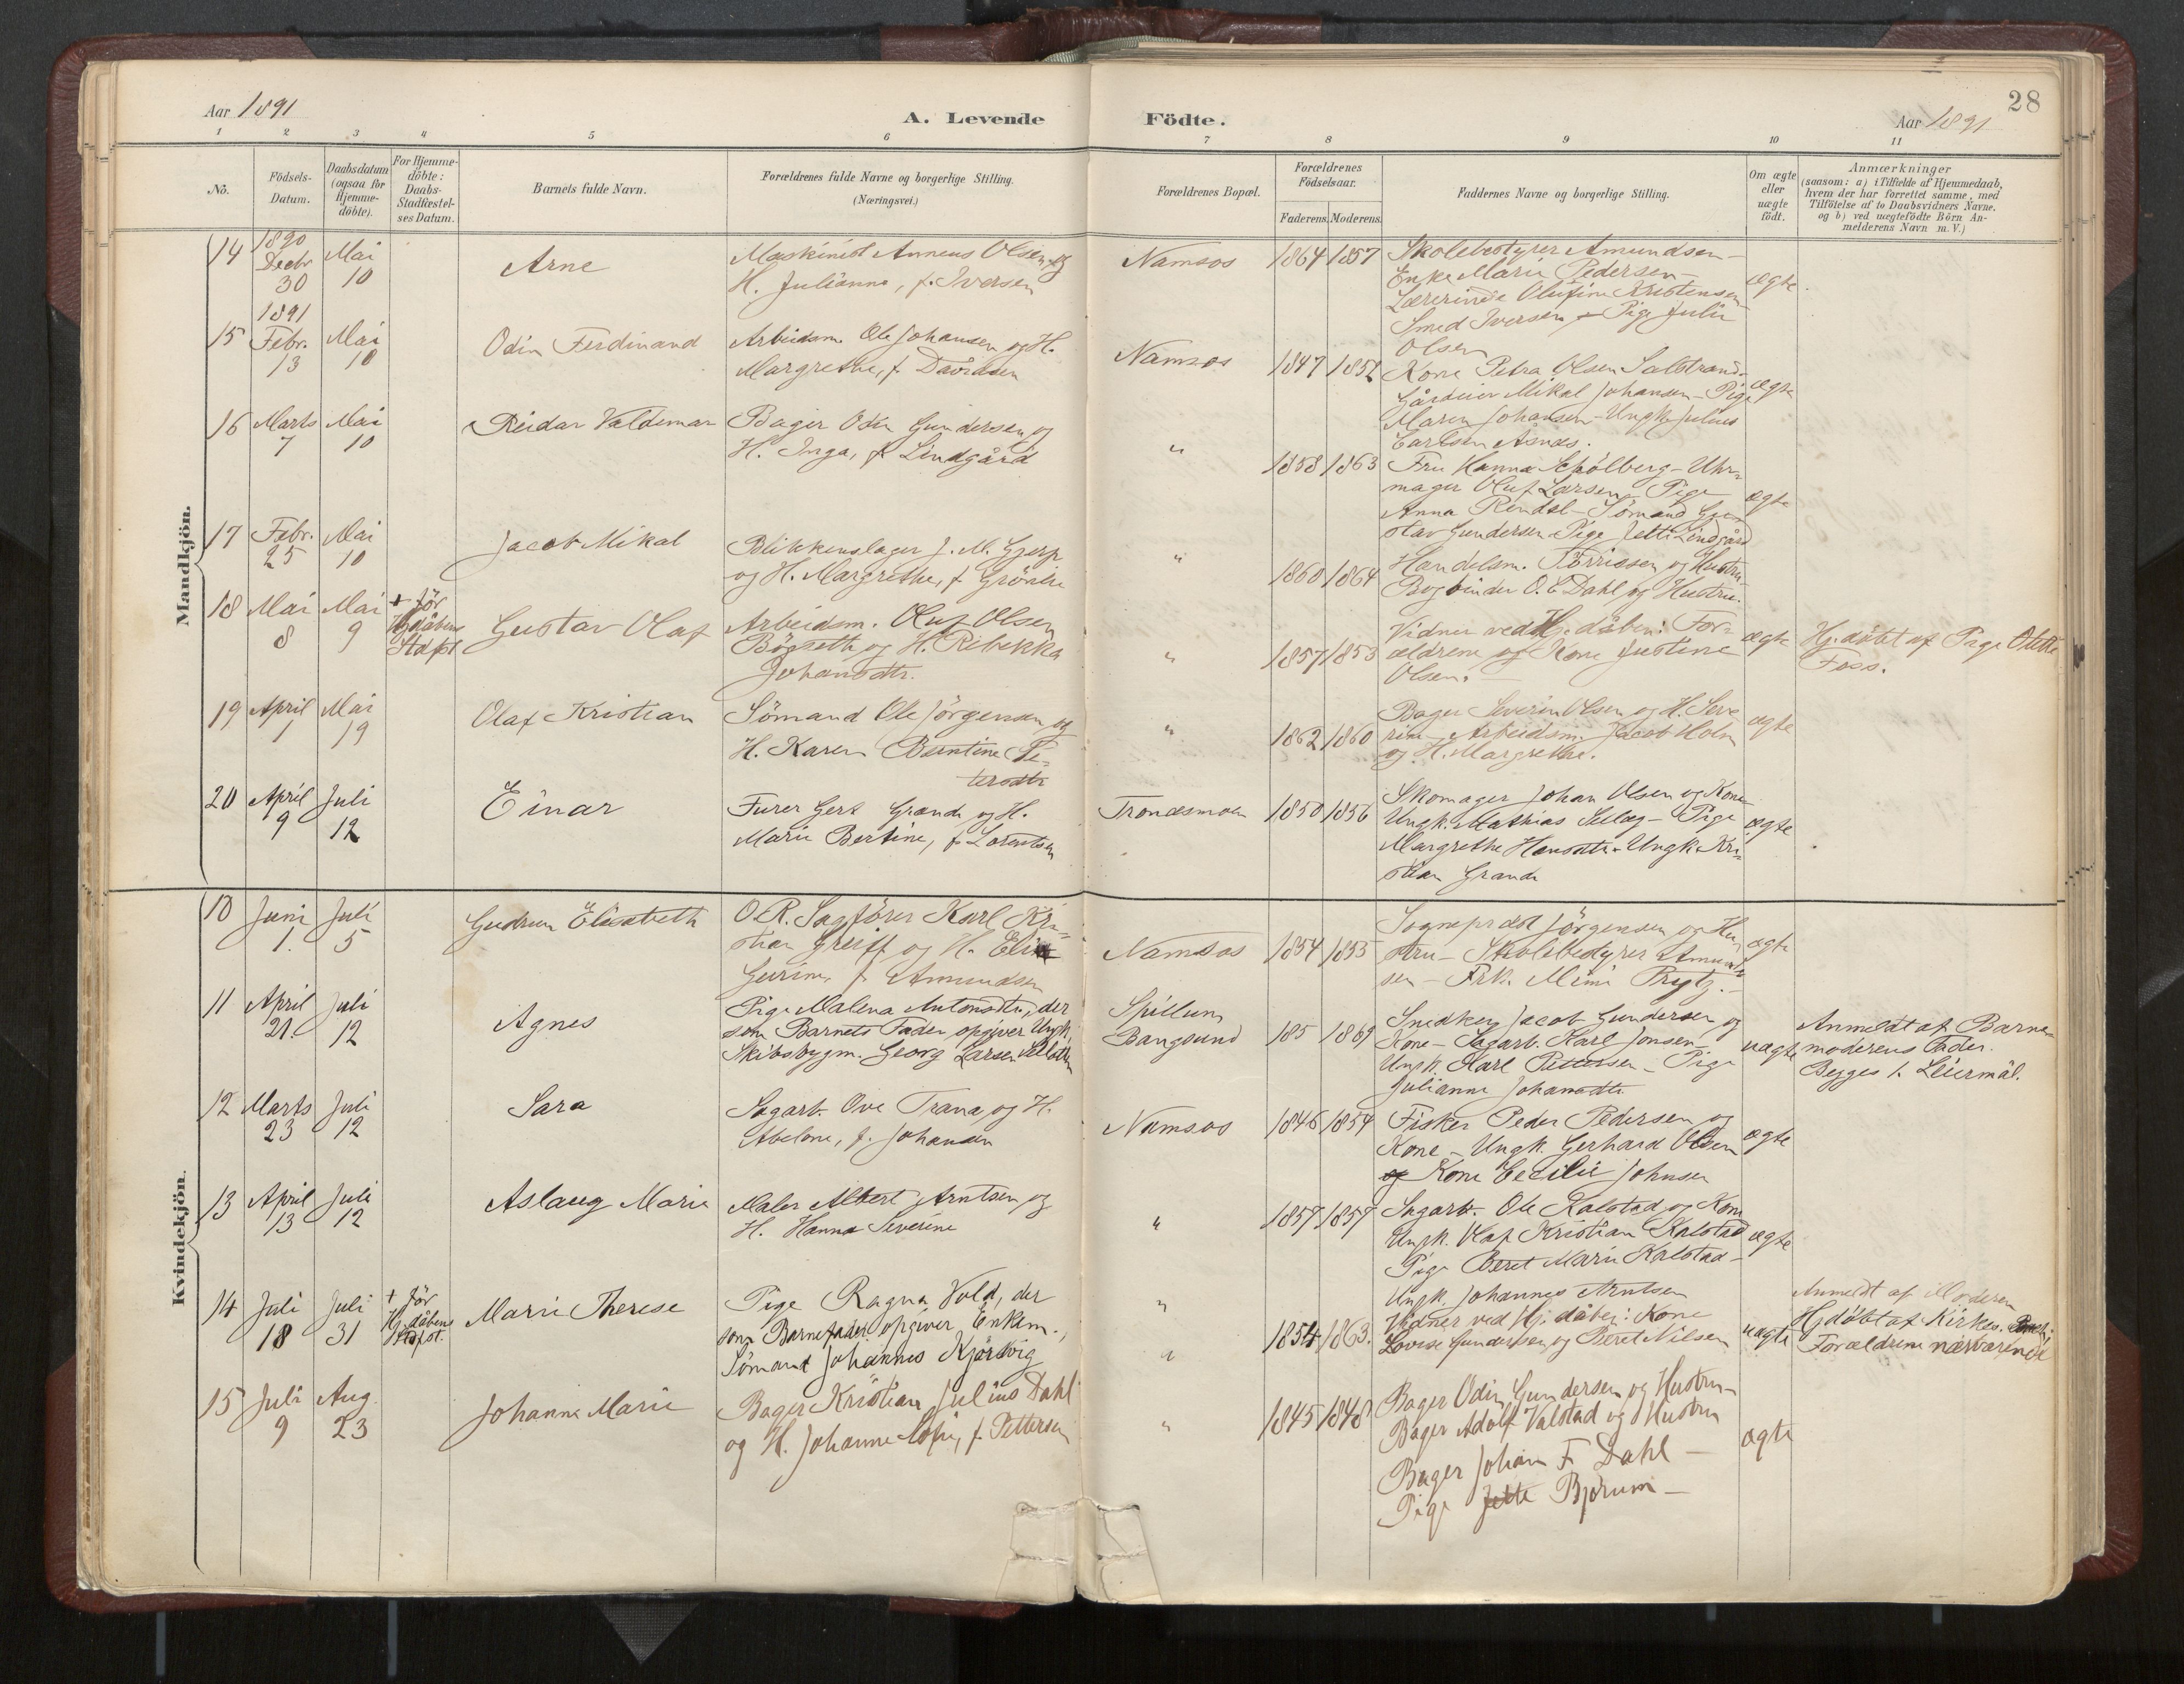 28
Aar 1891
A. Levende
Födte.
Aar 1891
1 2 3 4 5 6 7 8 9 10 11
No.
Födsels-
Datum.
Daabsdatum
(ogsaa for
Hjemme-
döbte).
For Hjemme-
döbte:
Daabs-
Stadfæstel-
ses Datum.
Barnets fulde Navn.
Forældrenes fulde Navne og borgerlige Stilling.
(Næringsvei.)
Forældrenes Bopæl.
Forældrenes
Födselsaar.
Faderens. Moderens.
Faddernes Navne og borgerlige Stilling.
Om ægte
eller
uægte
födt.
Anmærkninger
(saasom: a) i Tilfælde af Hjemmedaab,
hvem der har forrettet samme, med
Tilföielse af to Daabsvidners Navne.
og b) ved uægtefödte Börn An-
melderens Navn m. V.)
Mandkjön.
14
1890
Decbr
30
Mai
10
Arne
Maskinist Anneus Olsen og
H. Julianna, f. Iversen
Namsos
1864 1857
Skolebestyrer Amundsen -
Enke Marie Pedersen -
Lærerinde Olufine Kristensen
Smed Iversen - Pige Julie
Olsen
ægte.
1891
15
Febr.
13
Mai
10
Odin Ferdinand
Arbeidsm. Ole Johansen og H.
Margrethe, f. Davidsen
Namsos
1847 1852
Kone Petra Olsen Salstrand -
Gårdeier Mikal Johansen - Pige
Maren Johansen - Ungk. Julius
Carlsen Asnæs.
ægte
16
Marts
7
Mai
10
Reidar Valdemar
Bager Odin Gundersen og
H. Inga, f. Lindgård
"
1858 1863
Fru Hanna Schölberg - Uhr-
mager Oluf Larsen - Pige
Anna Rendal - Sömand Gu-
stav Gundersen - Pige Jette Lindgård
ægte
17
Febr.
25
Mai
10
Jacob Mikal
Blikkenslager J. M. Gjerp
og H. Margrethe, f. Grönlie
"
1860 1864
Handelsm. Törrissen og Hustru.
Bogbinder O. E. Dahl og Hustru.
18
Mai
8
Mai
9
+ för
Hjdåbens
Stdfst
Gustav Olaf
Arbeidsm. Oluf Olsen
Börseth og H. Rebekka
Johansdtr.
"
1857 1853
Vidner ved Hj. dåben: For-
ældrene og Kone Justine
Olsen. -
ægte
Hj. döbt af Pige Olette
Foss.
19
April
1
Mai
19
Olaf Kristian
Sömand Ole Jörgensen og
H. Karen Berntine Pe-
tersdtr
"
1862 1860
Bager Severin Olsen og H. Seve
rine - Arbeidsm. Jacob Holm
og H. Margrethe.
ægte
20
April
9
Juli
12
Einar
Furer Gert Grande og H.
Marie Bertine, f. Lorentsen
Trondsmoen
1850 1856
Skomager Johan Olsen og Kone
Ungk. Mathias Sellæg - Pige
Margrethe Hansdtr. Ungk. Kri-
stian Grande
ægte
Kvindekjön.
10
Juni
1.
Juli
5
Gudrun Elisabeth
O. R. Sagförer Karl Kri-
stian Greiff og H. Elise
Gurine, f. Amundsen
Namsos
1854 1855
Sogneprest Jörgensen og Hu-
stru - Skolebedyrer Amund
sen - Frk. Mimi Prytz. -
ægte
11
April
21.
Juli
12
Agnes
Pige Malena Antonsdtr, der
som Barnets Fader opgiver Ungk,
Skibsbygm. Georg Larsen
Spillum
Bangsund
185 1869
Snedker Jacob Gundersen og
Kone - Sagarb. Karl Jonsen -
Ungk. Karl Pettersen - Pige
Julianne Johansdtr
uægte
Anmeldt af Barne-
moderens Fader.
Begges 1. Leiermål.
12
Marts
23
Juli
12
Sara
Sagarb. Ove Trana og H.
Abelone, f. Johansen
Namsos
1846 1854
Fisker Peder Pedersen og
Kone - Ungk. Gerhard Olsen
og Kone Cecilie Johnsen
ægte
13
April
13
Juli
12
Aslaug Marie
Maler Albert Arntsen og
H. Hanna Severine
"
1857 1857
Sagarb. Ole Kalstad og Kone
Ungk. Olaf Kristian Kalstad
Pige Beret Marie Kalstad -
Ungk. Johannes Arntsen
ægte
14
Juli
18
Juli
31
+ för
Hj. dåbens
Stdfst.
Marie Therese
Pige Ragna Vold, der
som Barnefader opgiver Enkem.,
Sömand Johannes Kjörsvig
"
1854 1863.
Vidner ved Hj. dåben: Kone
Lovise Gundersen og Beret Nilsen
uægte
Anmeldt af Moderen
Hjdöbt af Kirkes.
Forældrene nærværende
15
Juli
9
Aug.
23
Johanne Marie
Bager Kristian Julius Dahl
og H. Johanne Sofie, f. Pettersen
"
1845 1848
Bager Odin Gundersen og Hustru -
Bager Adolf Valstad og Hustru
Bager Johan F. Dahl -
Pige Jette Bjørum -
ægte